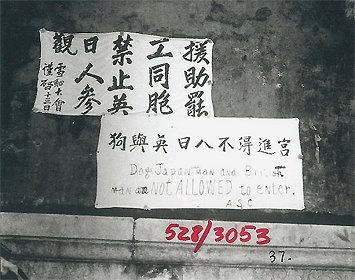 援助罷
工同胞
禁止英
日人參
觀
雪恥大會
十三日
狗與英日人不得進宮
Dogs and British
NOT ALLOWED to enter.
A.S.C
528/3053
37.